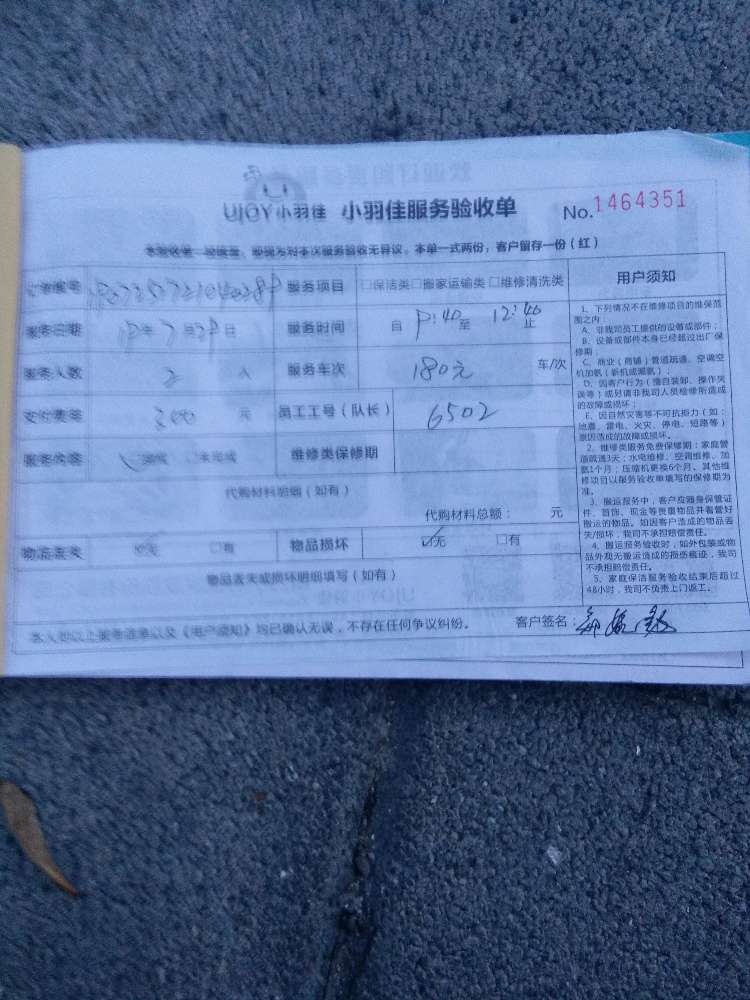 UJOY小羽佳 小羽佳服务验收单 No.1464351
本验收单一经签署，即视为对本次服务验收无异议，本单一式两份，客户留存一份（红）
订单编号 服务项目 □保洁类□搬家运输类□维修清洗类
服务日期 年7月 日 服务时间 自 9:40 至 12:40 止
服务人数 2 人 服务车次 180元 车/次
支付费用 300 元 员工工号（队长） 6502
服务内容 未完成 维修类保修期
代购材料明细（如有）
代购材料总额： 元
物品丢失 ☑无 □有 物品损坏 ☑无 □有
物品丢失或损坏明细填写（如有）
本人对以上服务清单以及《用户须知》均已确认无误，不存在任何争议纠纷。 客户签名：
用户须知
1、下列情况不在维修项目的维保范
围之内：
A、非我司员工提供的设备或部件；
B、设备或部件本身已经超过出厂保
修期；
C、商业（商铺）管道疏通、空调空
机加氨（新机或漏氨）；
D、因客户行为（擅自装卸、操作失
误等）或另请非我司人员检修所造成
的故障或损坏；
E、因自然灾害等不可抗拒力（如：
地震、雷电、火灾、停电、短路等）
原因造成的故障或损坏。
2、维修类服务免费保修期：家庭管
道疏通3天；水电维修、空调维修、加
氨1个月；压缩机更换6个月。其他维
修项目以服务验收单填写的保修期为
准。
3、搬运服务中，客户应随身保管证
件、首饰、现金等贵重物品并看管好
搬运的物品。如因客户造成的物品丢
失/损坏，我司不承担赔偿责任。
4、搬运服务验收时，如外包装或物
品外观无搬运造成的损伤痕迹，我司
不承担赔偿责任。
5、家庭保洁服务验收结束后超过
48小时，我司不负责上门返工。